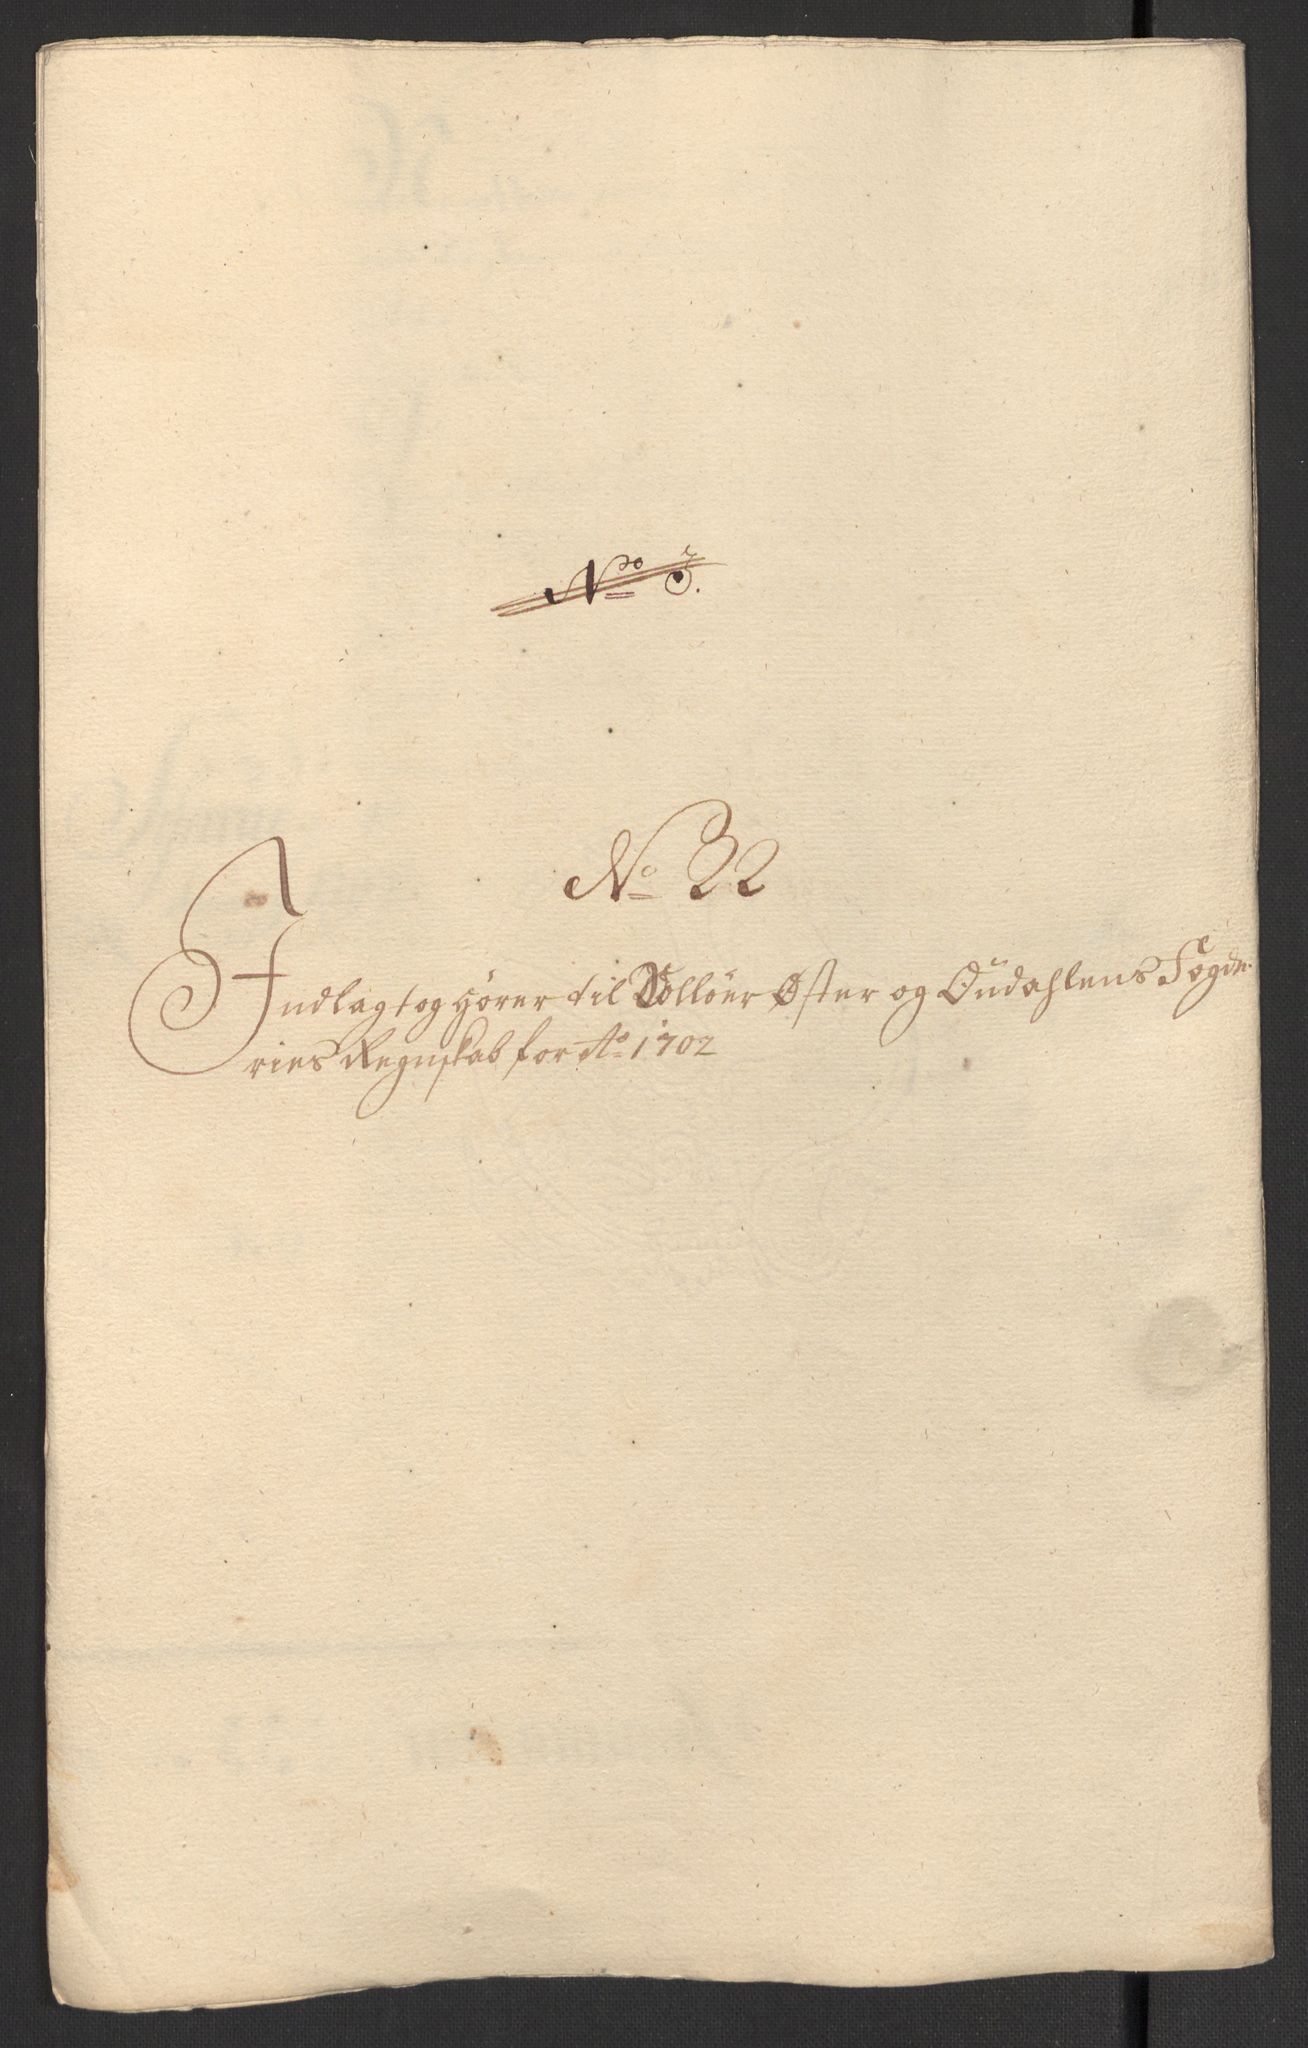 No 3.
No 22
Indlagt og hører til Solløer Øster og Oudahlens Fogde-
ries Regnskab for Ao 1702